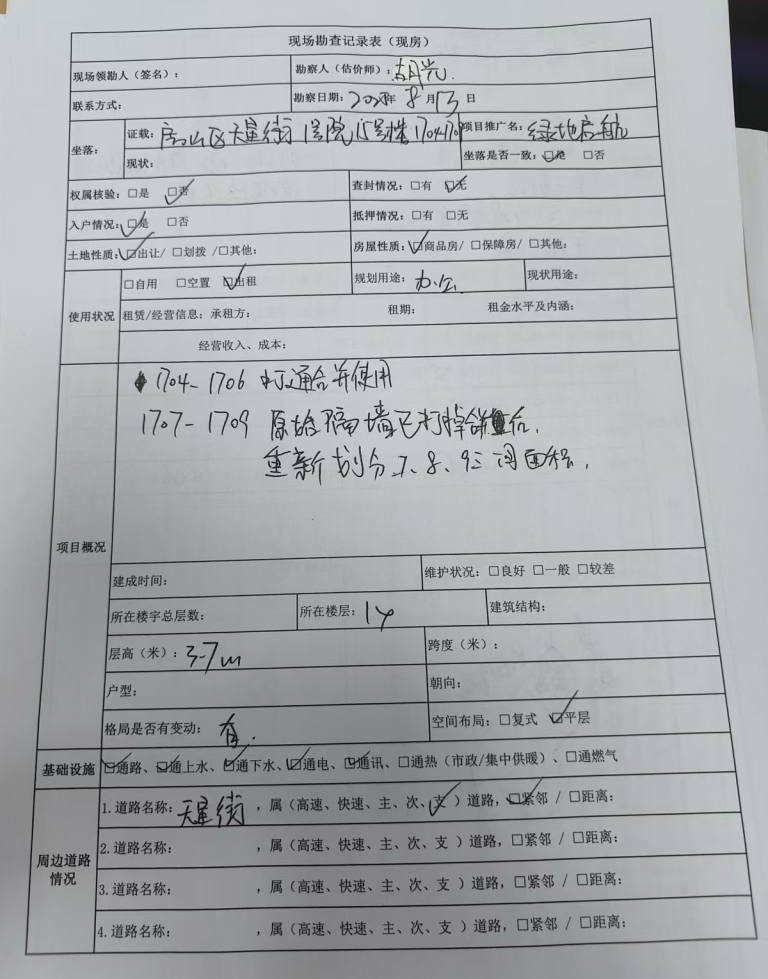 现场勘查记录表（现房）
现场领勘人（签名）： 勘察人（估价师）：胡光
联系方式： 勘察日期：202 年 8 月 13 日
坐落： 证载：房山区天星街1号院15号楼1704-1709 项目推广名：绿地启航
现状： 坐落是否一致：☑是 □否
权属核验：□是 ☑否 查封情况：□有 ☑无
入户情况：☑是 □否 抵押情况：□有 □无
土地性质：☑出让/ □划拨 /□其他： 房屋性质：☑商品房/ □保障房/ □其他：
使用状况 □自用 □空置 ☑出租 规划用途：办公 现状用途：
租赁/经营信息：承租方： 租期： 租金水平及内涵：
经营收入、成本：
项目概况 1704-1706 打通合并使用
1707-1709 原始隔墙已打掉 后，
重新划分7、8、9三间面积，
建成时间： 维护状况：□良好 □一般 □较差
所在楼宇总层数： 所在楼层：14 建筑结构：
层高（米）：3-7m 跨度（米）：
户型： 朝向：
格局是否有变动：有. 空间布局：□复式 ☑平层
基础设施 ☑通路、☑通上水、☑通下水、☑通电、☑通讯、□通热（市政/集中供暖）、□通燃气
周边道路情况 1.道路名称：天星街，属（高速、快速、主、次、支✓）道路，☑紧邻 / □距离：
2.道路名称： ，属（高速、快速、主、次、支 ）道路，□紧邻 / □距离：
3.道路名称： ，属（高速、快速、主、次、支 ）道路，□紧邻 / □距离：
4.道路名称： ，属（高速、快速、主、次、支 ）道路，□紧邻 / □距离：